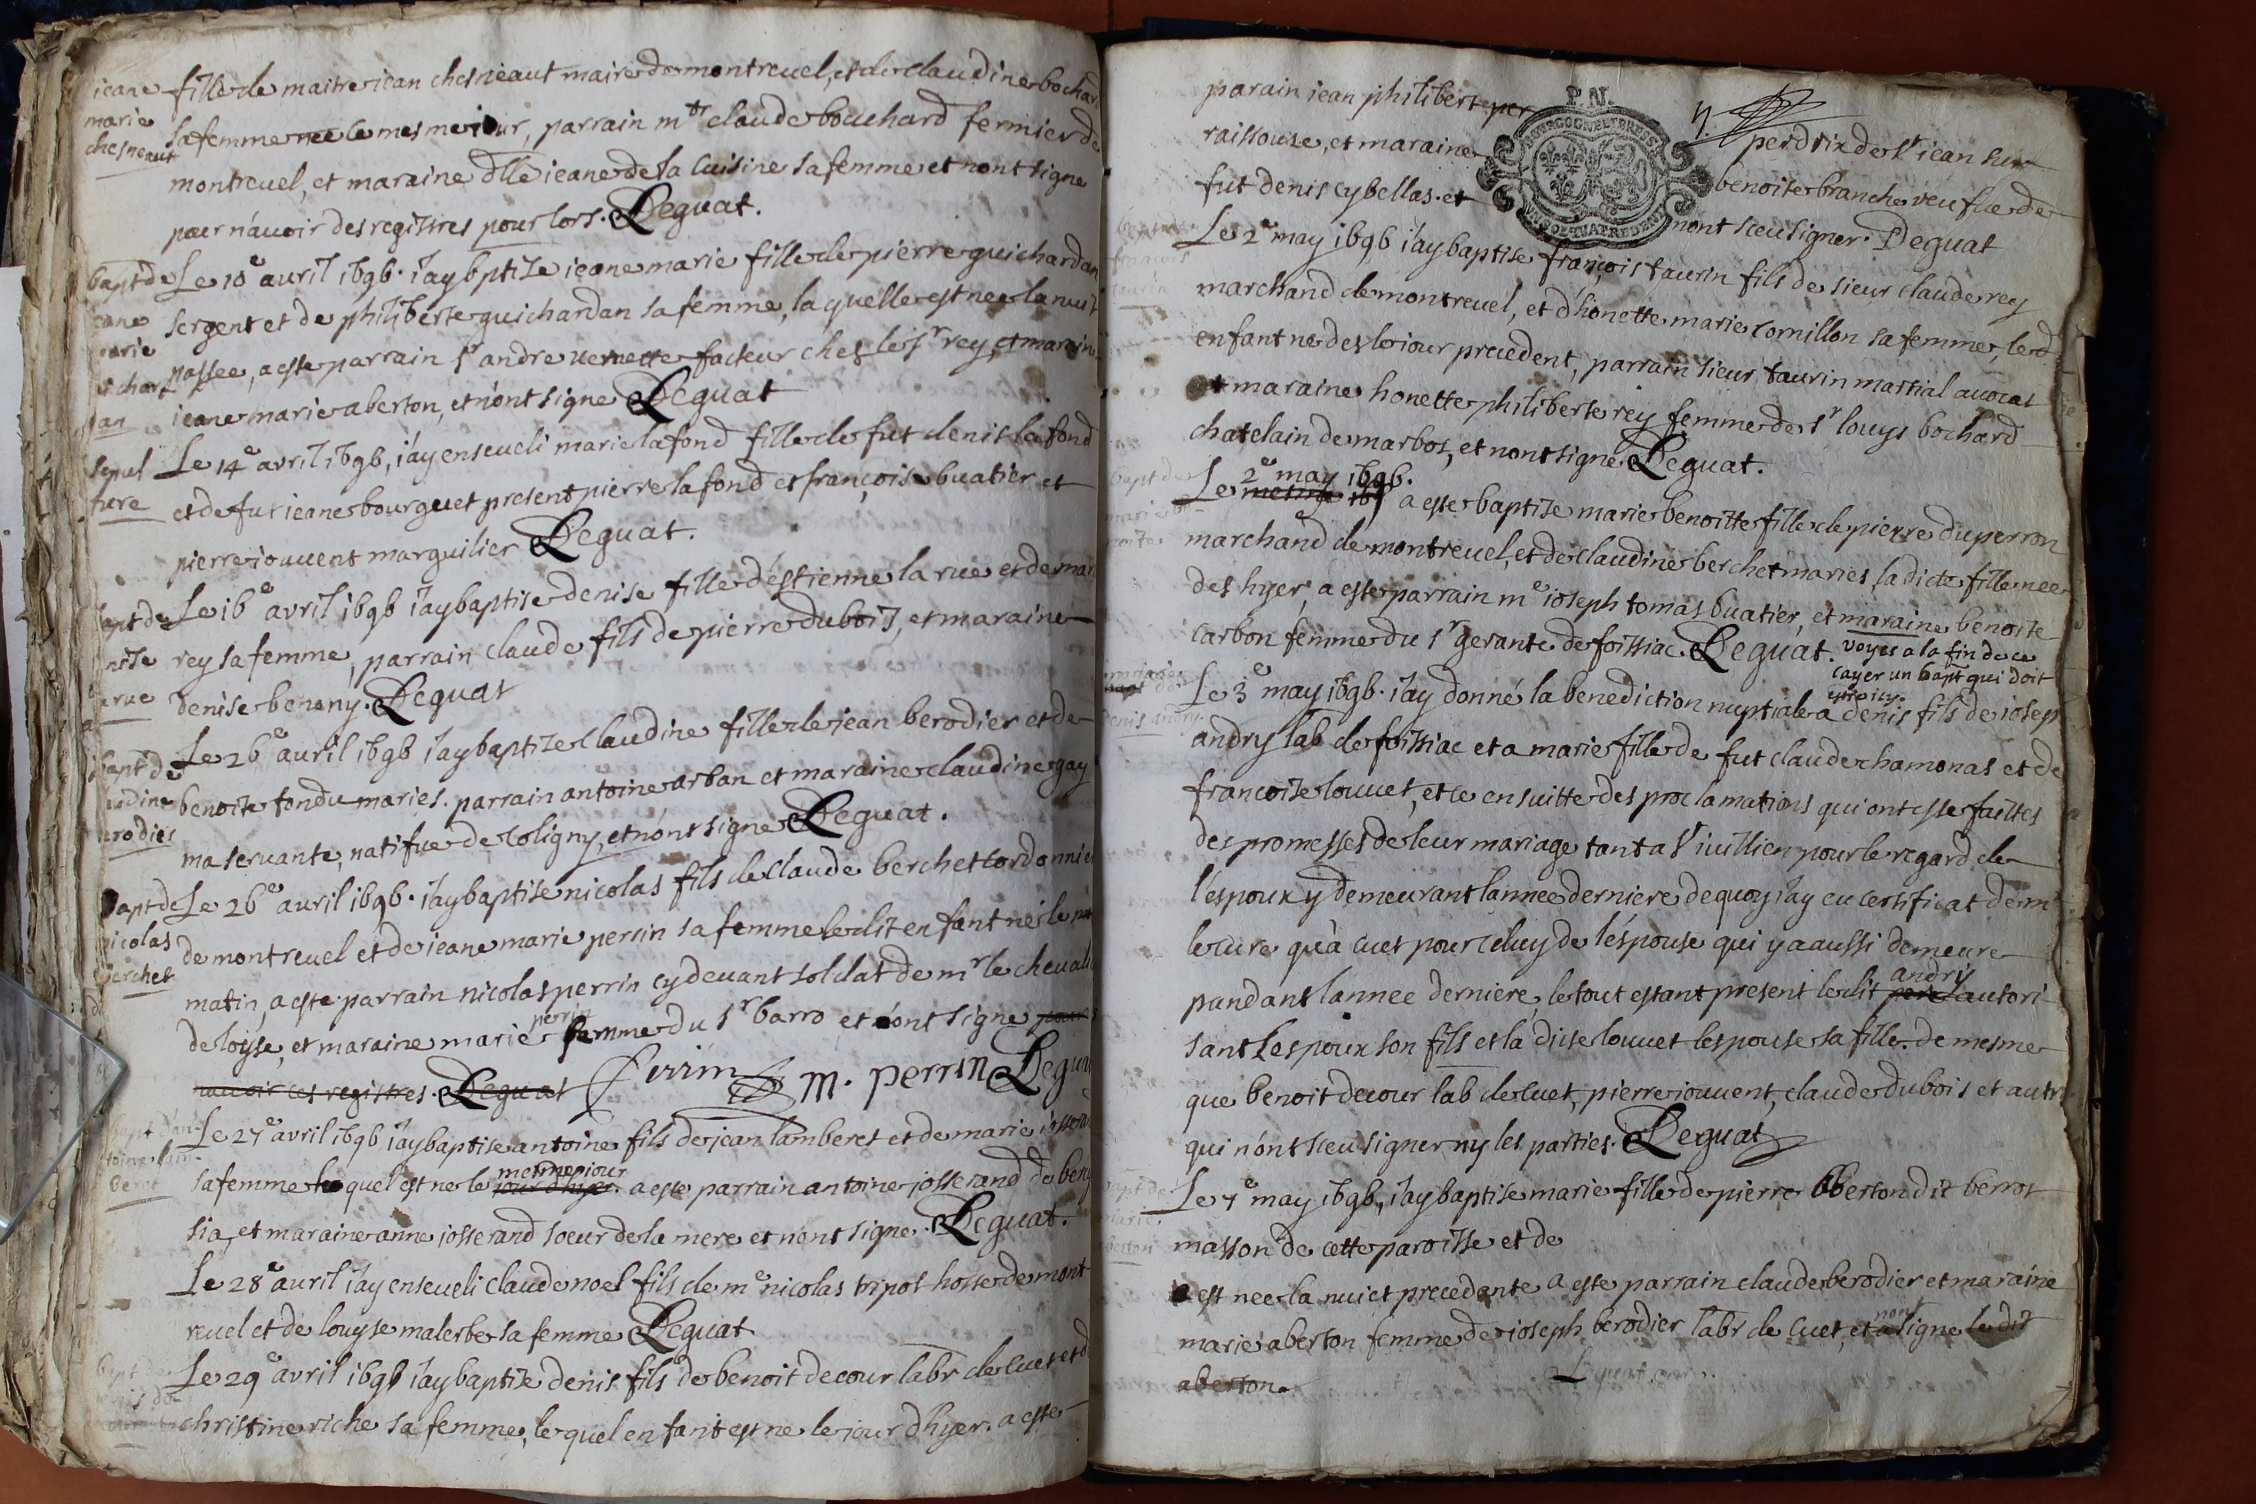 jeane
marie
chesneaut
fille de maitre jean chesneaut maire de montrevel, et de claudine bochar
sa femme nee le mesme jour, parrain mtr claude bouchard fermier de
montrevel, et maraine dlle jeane de la cuisine sa femme et nont signe
pour n'avoir des registres pour lors. Deguat.
bapt de
jeane
marie
guichar
dan
Le 10e avril 1696. j'ay bptise jeane marie fille de pierre guichardan
sergent et de philiberte guichardan sa femme, laquelle est nee la nuit
passee, a este parrain sr andre vernette facteur ches le sr rey, et marain
jeane marie aberton, et n'ont signe Deguat
sepul
ture
Le 14e avril 1696, j'ay enseveli marie lafond fille de fut denis lafond
et de fut jeane bourguet present pierre lafond et françois buatier et
pierre jouvent marguilier Deguat.
bapt de
nise
larue
Le 16e avril 1696 j'ay baptise denise fille d'estienne la rue et de mari
rey sa femme, parrain claude fils de pierre dubois, et maraine
denise benony. Deguat
bapt de
claudine
berodier
Le 26e avril 1696 j'ay baptize claudine fille de jean berodier et de
benoite fondu maries. parrain antoine arban et maraine claudine gay
ma servante, natifve de coligny, et n'ont signe Deguat.
bapt de
nicolas
berchet
Le 26e avril 1696. j'ay baptise nicolas fils de claude berchet cordonnier
de montrevel et de jeane marie perrin sa femme le dit enfant né le
matin, a este parrain nicolas perrin cy devant soldat de mr le chevali
de loyse, et maraine marie perrin femme du sr barro et ont signe pour
avoir ces registres. Deguat Perrin m. perrin Deguat
bapt dan
toine lam
beret
Le 27e avril 1696 j'ay baptise antoine fils de jean lamberet et de marie josserand
sa femme lequel est ne le jour d'hyer mesme jour a este parrain antoine josserand de beny
sia, et maraine anne josserand soeur de la mere et n'ont signe. Deguat.
Le 28e avril j'ay enseveli claude noel fils de me nicolas tripot hoste de mont
revel et de louyse malerbe sa femme Deguat
bapt de
denis de
Le 29e avril 1696 j'ay baptize denis fils de benoit decour labr de cuet et d
christine riche sa femme, lequel enfant est ne le jour d'hyer. a este
parain jean philibert per
P. N.
perdrix de st jean sur
raissouse, et maraine
benoite branche veufve de
fut denis cybellas. et
n'ont sceu signer. Deguat
Le 2e may 1696 j'ay baptise françois taurin fils de sieur claude rey
marchand de montrevel, et d'honette marie cornillon sa femme, le d
enfant ne des le jour precedent, parrain sieur taurin martial avocat
et maraine honette philiberte rey femme de sr louys bochard
chatelain de marbos, et nont signe Deguat.
bapt de
marie be
noite
Le 2e may 1696. a este baptise marie benoitte fille de pierre duperron
marchand de montrevel, et de claudine berchet maries, la dicte fille nee
des hyer, a este parrain me joseph tomas buatier, et maraine benoite
carbon femme du sr gerante de foissiac. Deguat. voyes a la fin de ce
cayer un bapt qui doit
estre icy.
mariage
denis andry
Le 3e may 1696. j'ay donné la benediction nuptiale a denis fils de joseph
andry lab de foissiac et a marie fille de fut claude chamonas et de
francoise louvet, et ce ensuitte des proclamations qui ont esse faittes
des promesses de leur mariage tant a st juillien pour le regard de
l'espoux y demeurant lannee derniere de quoy j'ay eu certificat de mr
le cure qu'à cuet pour celuy de l'éspouse qui y a aussi demeure
pandant lannee derniere, le tout estant present le dit pere andry autori
sant lespoux son fils et la dicte louvet lespouse sa fille. de mesme
que benoit decour lab de cuet, pierre jouvent, claude dubois et autr
qui n'ont sceu signer ny les parties. Deguat
bapt de
marie
aberton
Le 7e may 1696, j'ay baptise marie fille de pierre Aberton dit berrot
masson de cette paroisse et de
est nee la nuict precedante a este parrain claude berodier et maraine
marie aberton femme de joseph berodier labr de cuet, et nont signe ledit
aberton.